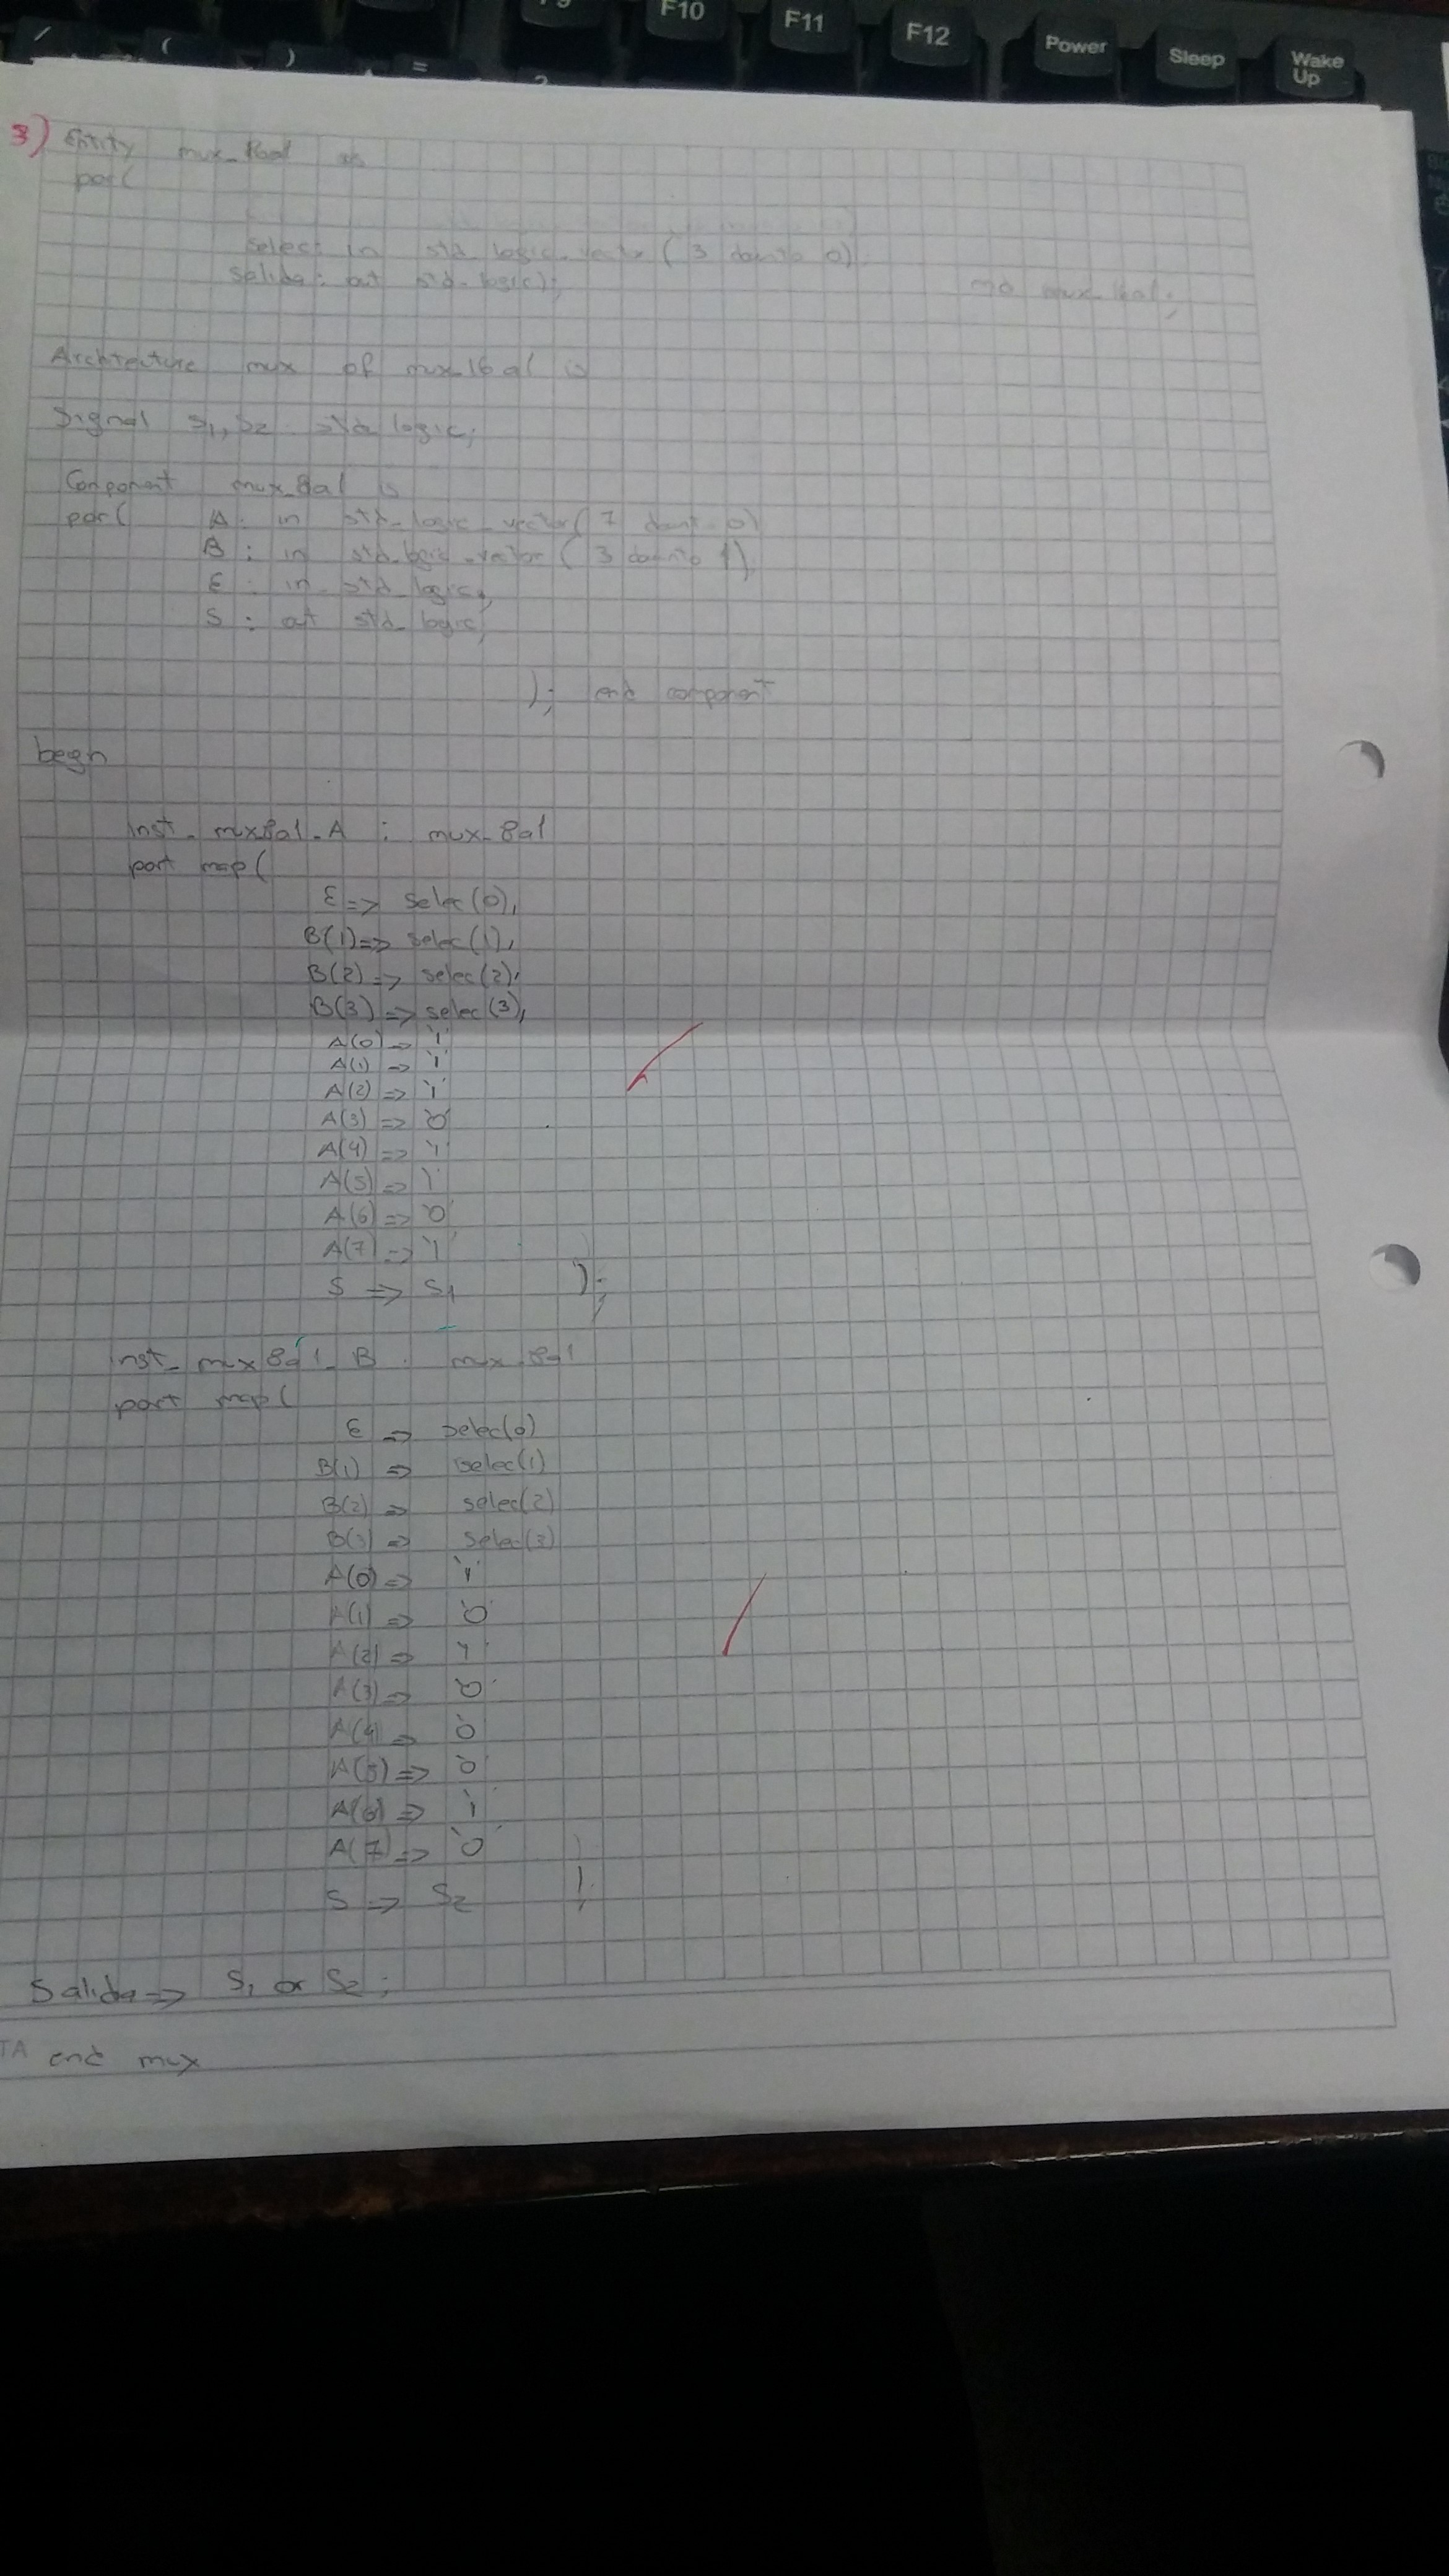 F9 F10 F11 F12 Power Sleep Wake Up
/ ( ) =
3) Entity is
por(
selec: in std_logic_vector ( 3 downto 0)
salida: out std_logic);
end mux_16a1;
Architecture mux of mux_16a1 is
Signal S1, S2 std_logic;
Component mux_8a1 is
por( A: in std_logic_vector( 7 downto 0)
B: in std_logic_vector ( 3 downto 1),
E: in std_logic,
S: out std_logic,
); end component
begin
inst_mux8a1_A : mux_8a1
port map(
E => selec(0),
B(1)=> selec(1),
B(2)=> selec(2),
B(3)=> selec(3),
A(0)=> '1'
A(1) => '1'
A(2)=> '1'
A(3)=> '0'
A(4)=> '1'
A(5)=> '1'
A(6)=> '0'
A(7)=> '1'
S => S1 );
inst_mux8a1_B mux 8a1
port map(
E => selec(0)
B(1) => selec(1)
B(2)=> selec(2)
B(3)=> selec(3)
A(0)=> '1'
A(1)=> '0'
A(2)=> '1'
A(3)=> '0'
A(4)=> '0'
A(5)=> '0'
A(6)=> '1'
A(7)=> '0'
S => S2 );
Salida=> S1 or S2;
TA end mux